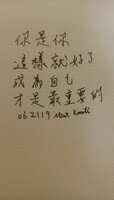 你是你
這樣就好了
成為自己
才是最重要的
062119